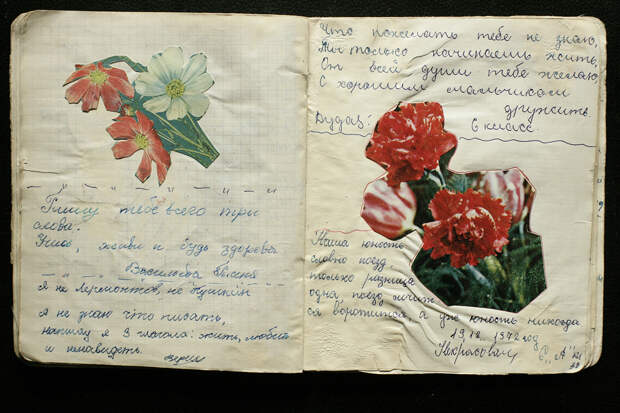 Пишу тебе всего три
слова:
Учись, живи и будь здорова
Васильева Евгения
Я не Лермонтов, не Пушкин
Я не знаю что писать,
напишу я 3 глагола: жить, любить
и ненавидеть.
Что пожелать тебе не знаю,
Ты только начинаешь жить,
От всей души тебе желаю
С хорошим мальчиком
дружить.
6 класс
Наша юность
словно поезд
только разница
одна поезд мчит
ся воротится, а уж юность никогда
1972 год
"А"